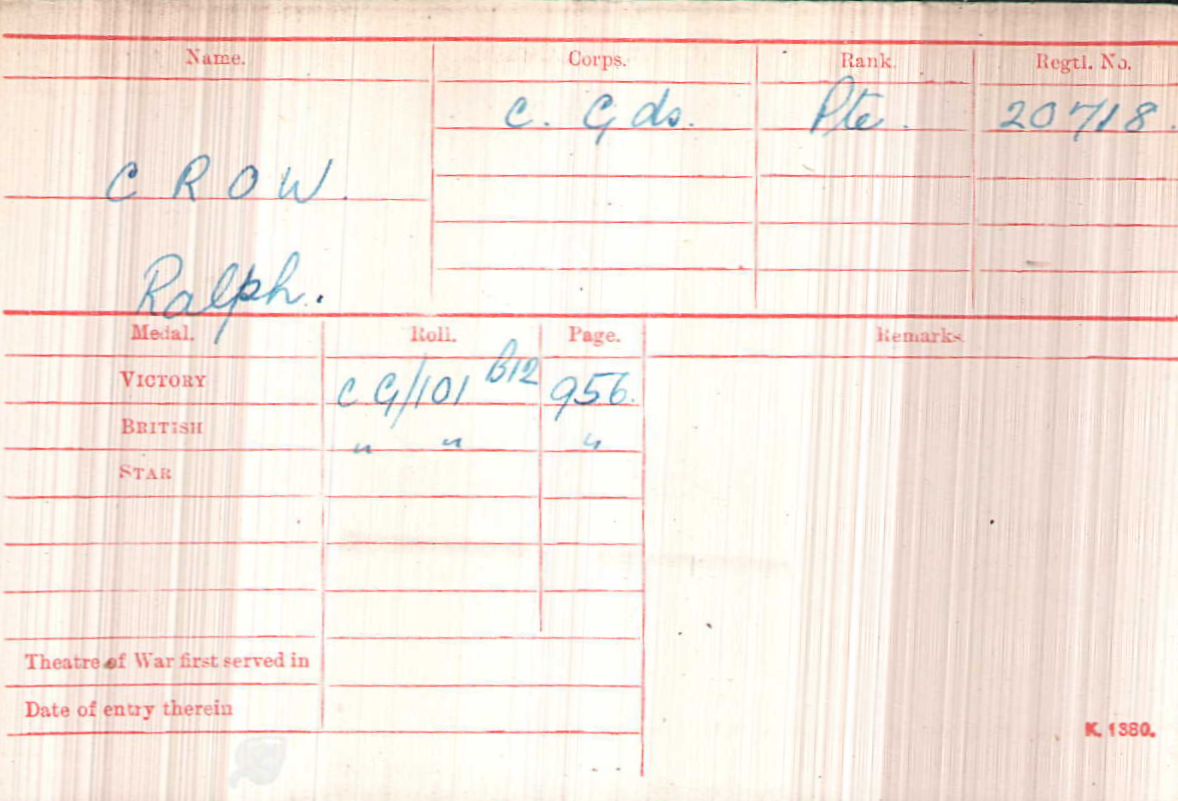 Name. Corps. Rank. Regtl. No.
C. Gds. Pte. 20718.
CROW.
Ralph.
Medal. Roll. Page. Remarks.
VICTORY CG/101 B12 956.
BRITISH " " "
STAR
Theatre of War first served in
Date of entry therein
K. 1380.